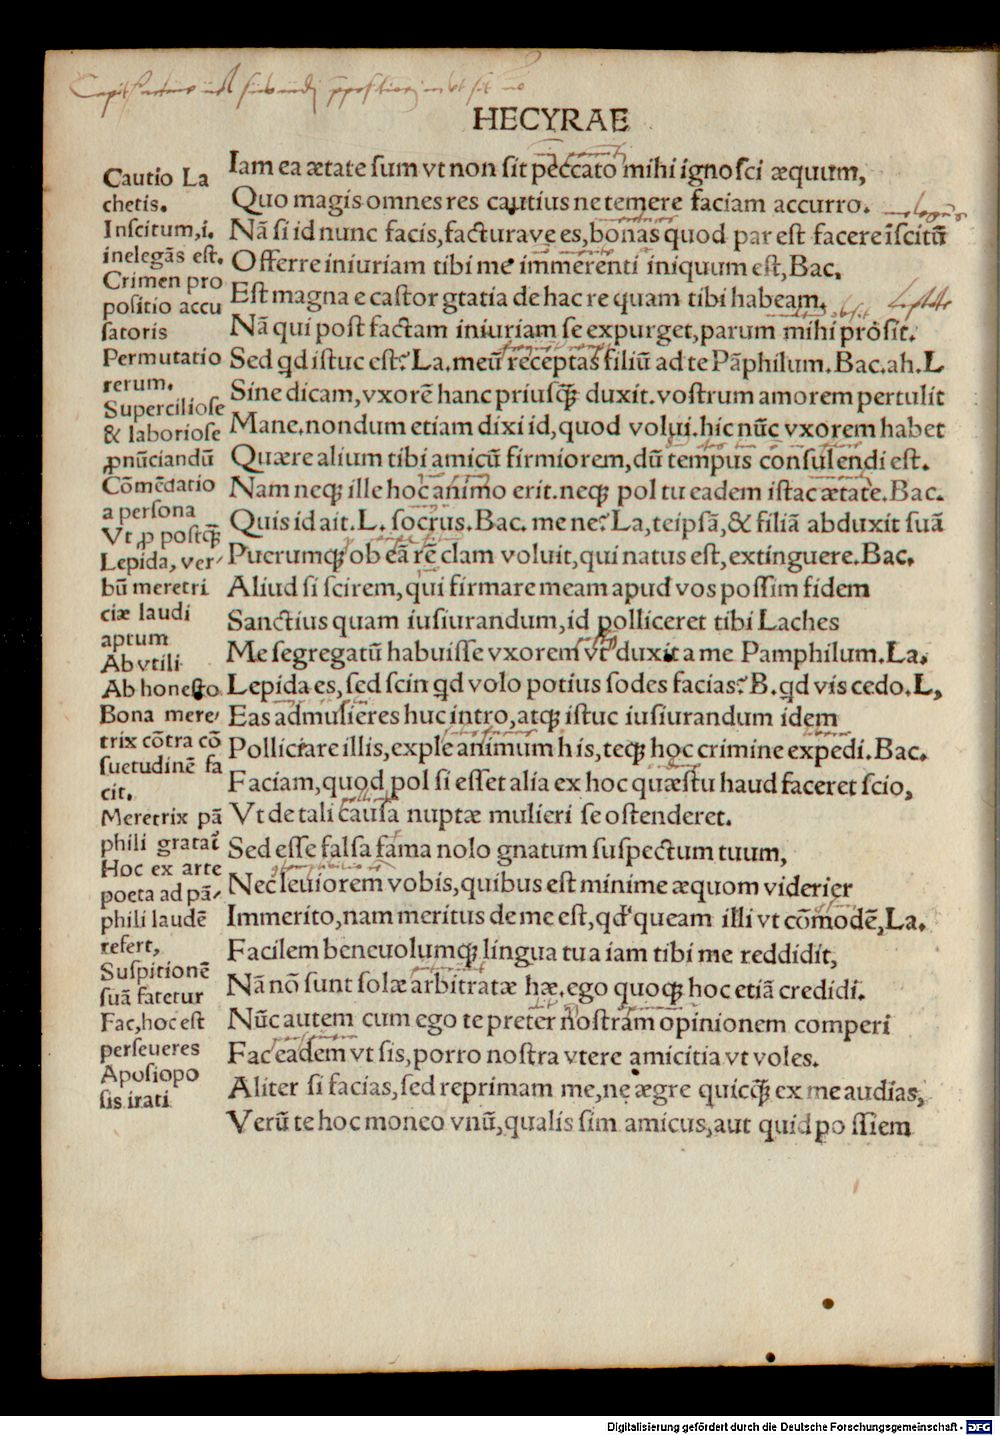 HECYRAE
Iam ea ætate sum vt non sit peccato mihi ignosci æquum,
Quo magis omnes res cautius ne temere faciam accurro.
Nā si id nunc facis, facturave es, bonas quod par est facere īscitū
Offerre iniuriam tibi me immerenti iniquum est, Bac.
Est magna ecastor gtatia de hac re quam tibi habeam.
Nā qui post factam iniuriam se expurget, parum mihi prosit.
Sed qd istuc est? La. meū receptas filiū ad te Pāphilum. Bac. ah. L
Sine dicam, vxorē hanc priusꝗ duxit. vostrum amorem pertulit
Mane. nondum etiam dixi id, quod volui. hic nūc vxorem habet
Quære alium tibi amicū firmiorem, dū tempus consulendi est.
Nam neqꝫ ille hoc animo erit. neqꝫ pol tu eadem istac ætate. Bac.
Quis id ait. L. socrus. Bac. me ne? La, teipsā, & filiā abduxit suā
Puerumqꝫ ob eā rē clam voluit, qui natus est, extinguere. Bac.
Aliud si scirem, qui firmare meam apud vos possim fidem
Sanctius quam iusiurandum, id polliceret tibi Laches
Me segregatū habuisse vxorem vt duxit a me Pamphilum. La.
Lepida es, sed scin qd volo potius sodes facias? B. qd vis cedo. L,
Eas ad mulieres huc intro, atqꝫ istuc iusiurandum idem
Pollicitare illis, exple animum his, teqꝫ hoc crimine expedi. Bac.
Faciam, quod pol si esset alia ex hoc quæstu haud faceret scio,
Vt de tali causa nuptæ mulieri se ostenderet.
Sed esse falsa fama nolo gnatum suspectum tuum,
Nec leuiorem vobis, quibus est minime æquom viderier
Immerito, nam meritus de me est, qd queam illi vt cōmodē, La.
Facilem beneuolumqꝫ lingua tua iam tibi me reddidit,
Nā nō sunt solæ arbitratæ hæ. ego quoqꝫ hoc etiā credidi.
Nūc autem cum ego te preter nostram opinionem comperi
Fac eadem vt sis, porro nostra vtere amicitia vt voles.
Aliter si facias, sed reprimam me, ne ægre quicꝗ ex me audias,
Verū te hoc moneo vnū, qualis sim amicus, aut quid po ssiem
Cautio La
chetis.
Inscitum, i.
inelegās est.
Crimen pro
positio accu
satoris
Permutatio
rerum.
Superciliose
& laboriose
ꝓnūciandū
Cōmēdatio
a persona
Vt ꝓ postꝗ
Lepida, ver/
bū meretri
ciæ laudi
aptum
Ab vtili
Ab honesto
Bona mere/
trix cōtra cō
suetudinē fa
cit.
Meretrix pā
phili gratat̄
Hoc ex arte
poeta ad pā/
phili laudē
refert,
Suspitionē
suā fatetur
Fac, hoc est
perseueres
Aposiopo
sis irati
Digitalisierung gefördert durch die Deutsche Forschungsgemeinschaft - DFG